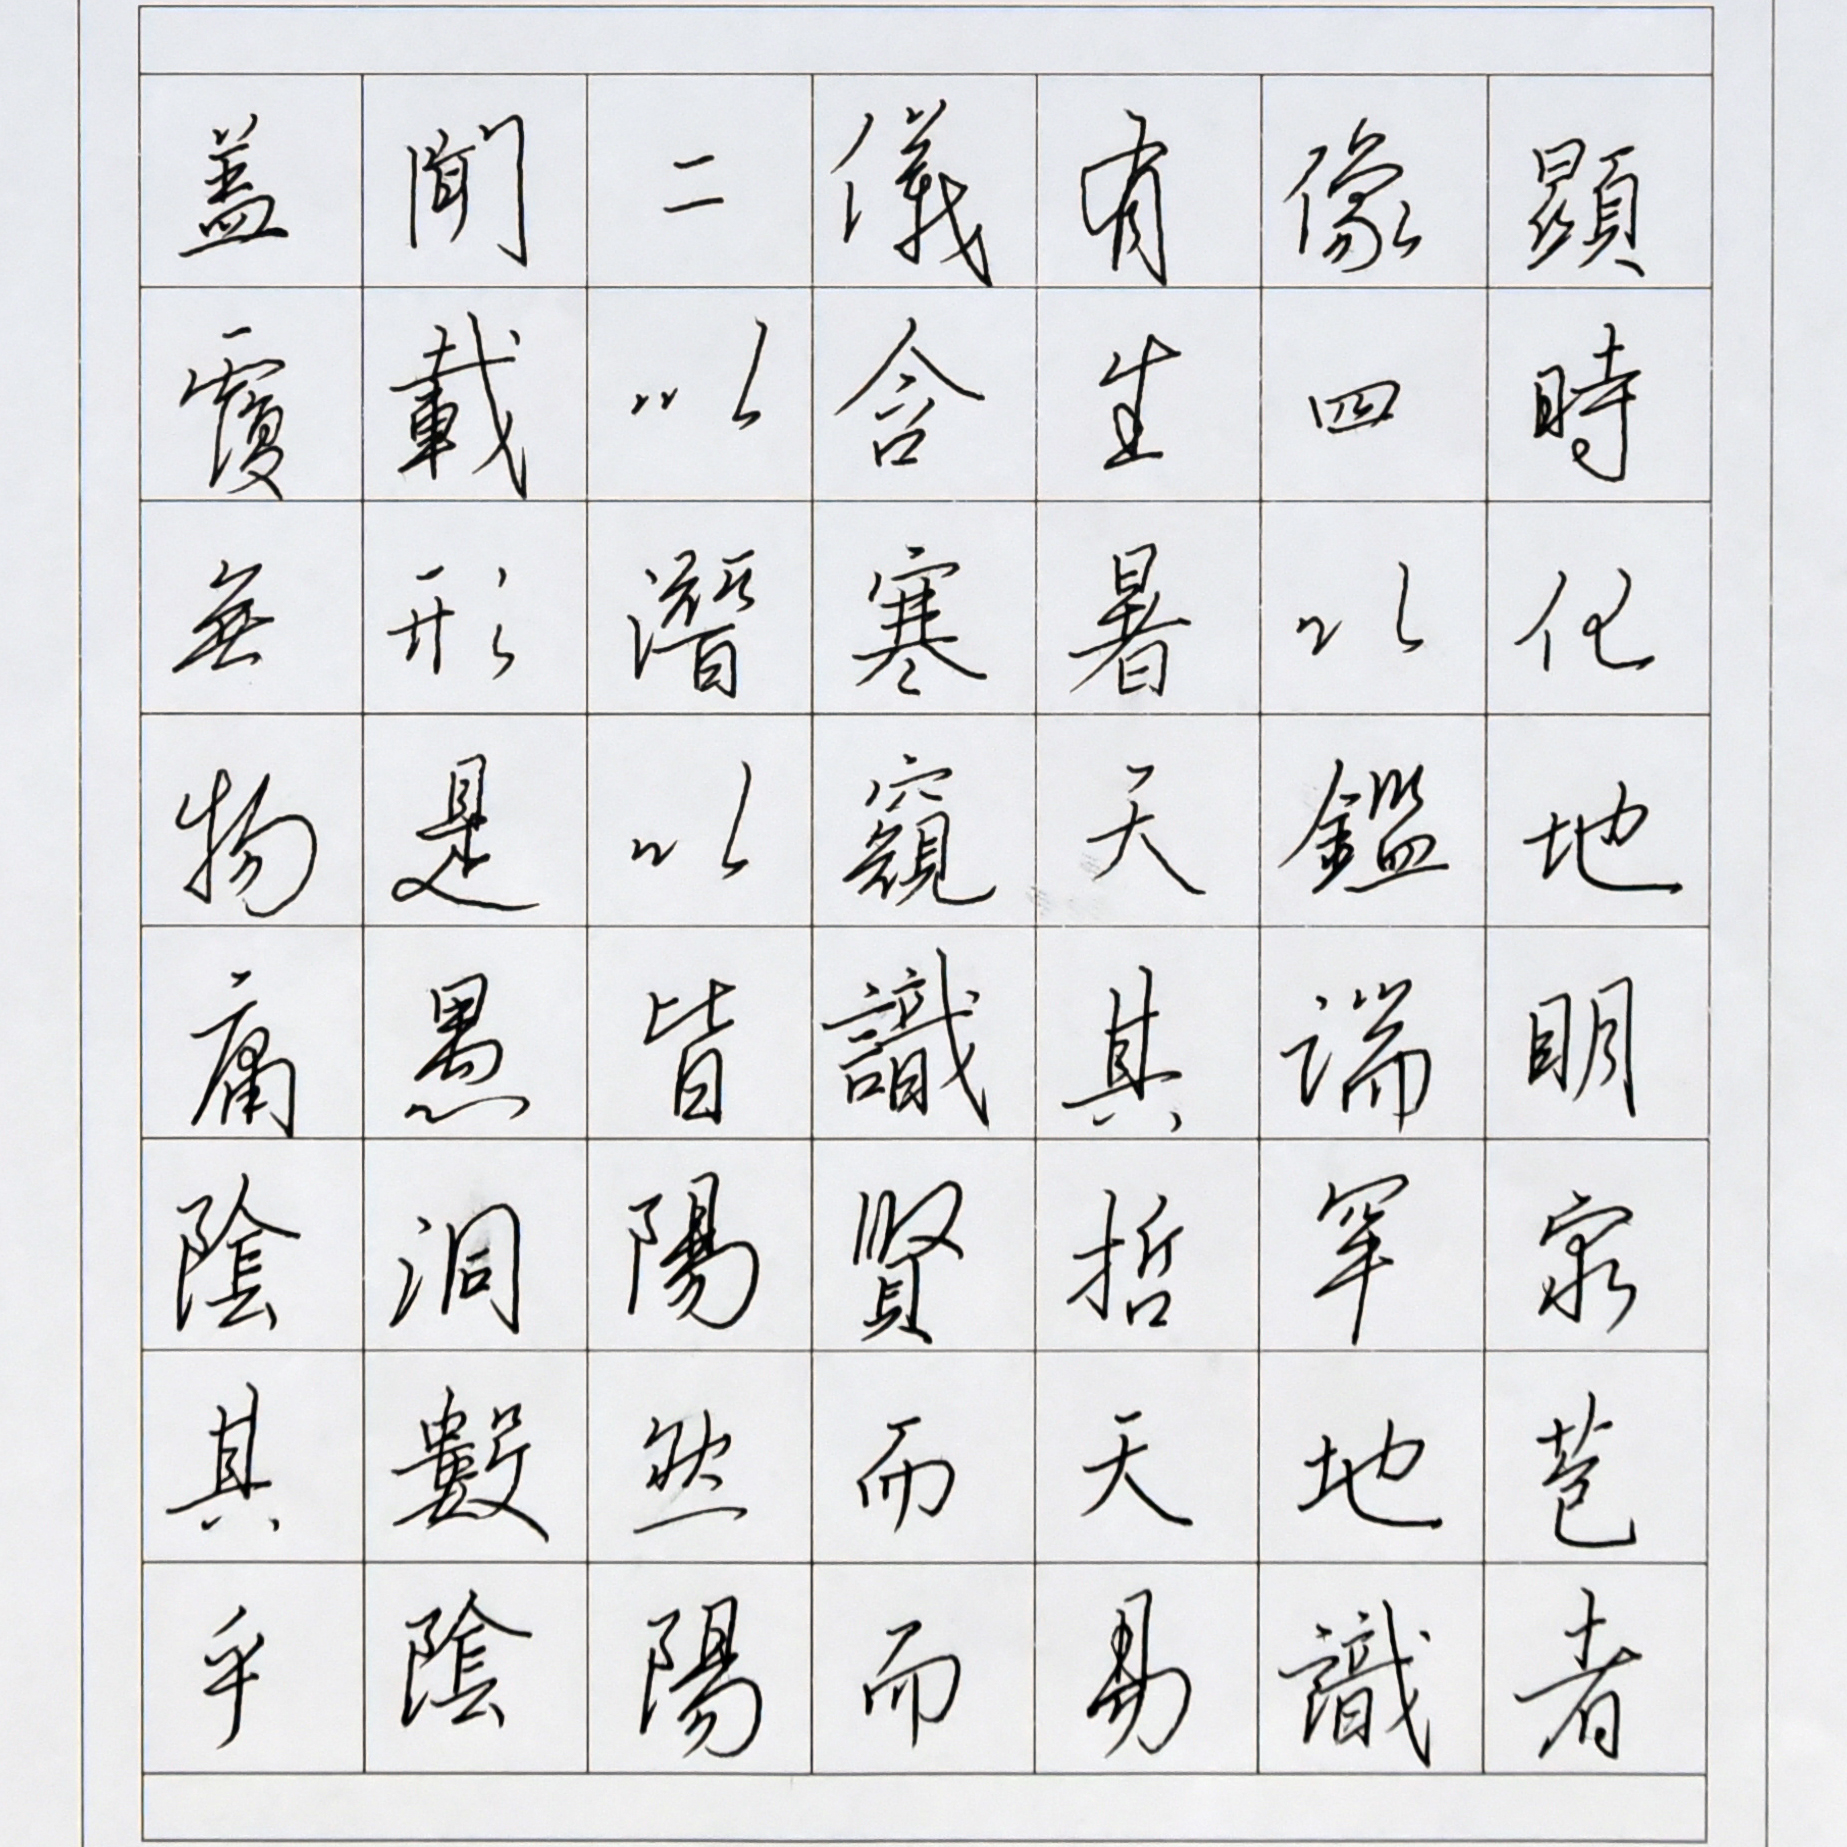 蓋聞二儀有像顯
覆載以含生四時
無形潛寒暑以化
物是以窺天鑑地
庸愚皆識其端明
陰洞陽賢哲罕窮
其數然而天地苞
乎陰陽而易識者